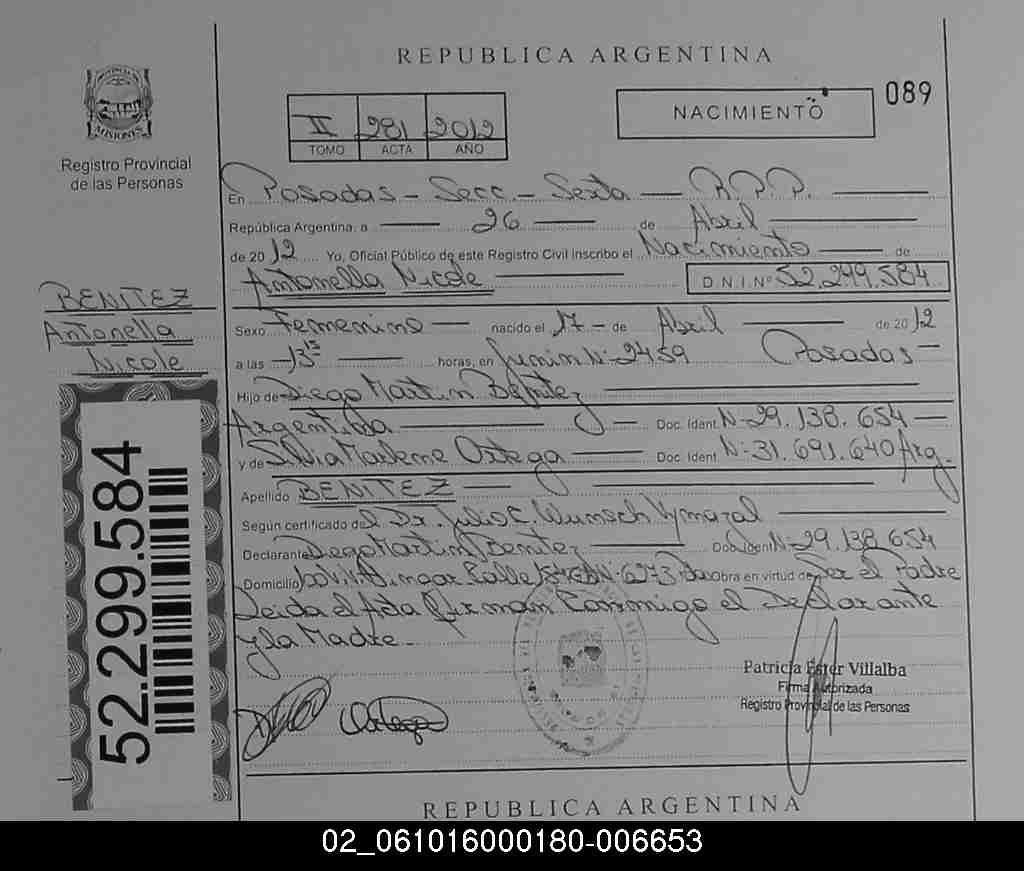 REPUBLICA ARGENTINA
PROVINCIA DE
MISIONES
Registro Provincial
de las Personas
II 281 2012
TOMO ACTA AÑO
NACIMIENTO
089
En Posadas - Secc. - Sexta — R.P.P. —
República Argentina, a — 26 — de Abril —
de 2012 Yo, Oficial Público de este Registro Civil inscribo el Nacimiento — de
Antonella Nicole — D.N.I.Nº 52.299.584
BENITEZ
Antonella
Nicole
Sexo Femenino — nacido el 17 - de Abril — de 2012
a las - 13 15 — horas, en Junin Nº 2459 Posadas -
Hijo de Diego Martin Benitez —
Argentina — Doc. Ident. Nº 29.138.654 —
y de Silvia Marlene Ortega — Doc. Ident. Nº 31.691.640 Arg.
Apellido BENITEZ —
Según certificado del Dr. Julio C. Wunsch Vymazal —
Declarante Diego Martin Benitez — Doc. Ident. Nº 29.138.654
Domicilio Calle Nº 6273 Obra en virtud de Ser el Padre
Leida el Acta Firman Conmigo el Declarante
y la Madre -
52.299.584
Ortega
Patricia Ester Villalba
Firma Autorizada
Registro Provincial de las Personas
REPUBLICA ARGENTINA
02_061016000180-006653